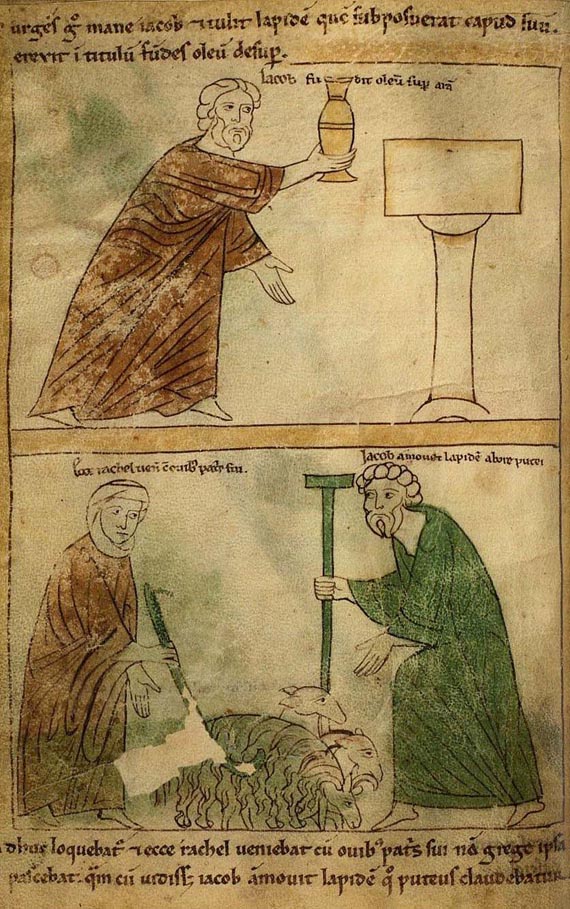 urgēs g̊ mane iacob ⁊ tulit lapidē quē subposuerat capud suū.
erexit ī titulū fūdēs oleū desup̄.
Iacob fudit oleū sup̄ arā
rachel uen̄ c̄ ouib; pat̄s sui.
Iacob amouet lapidē abore putei
dhuc loquebat̄ ⁊ ecce rachel ueniebat cū ouib; pat̄s sui nā grege ipsa
pascebat. q̄m cū uidiss; iacob āmouit lapidē q̊ puteus claudebatur